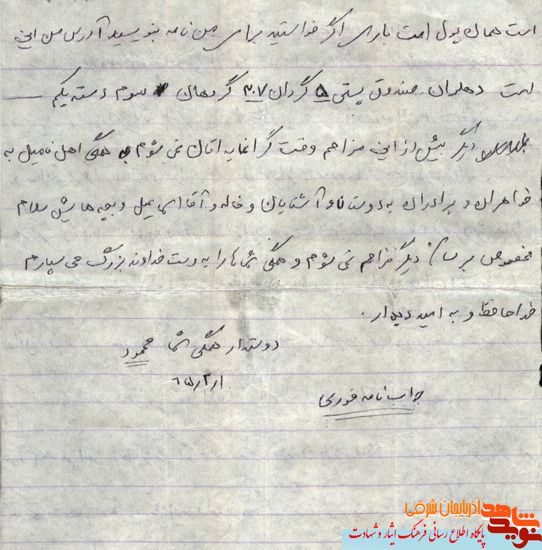 است همان پول است باری اگر خواستید برای من نامه بنویسید آدرس من این
است دهلران صندوق پستی ۵ گردان ۳۰۷ گروهان سوم دسته یکم
دیگر بیش از این مزاحم وقت گرانمایه اتان نمی شوم همگی اهل فامیل به
خواهران و برادران به دوستان و آشنایان و خاله و آقا اسماعیل و بچه هایش سلام
مخصوص برسان دیگر مزاحم نمی شوم و همگی شماها را به دست خداوند بزرگ می سپارم
خداحافظ و به امید دیدار.
دوستدار همگی شما محمود
۶۵/۲/۱
جواب نامه فوری
نوید شاهد آذربایجان شرقی
پایگاه اطلاع رسانی فرهنگ ایثار و شهادت